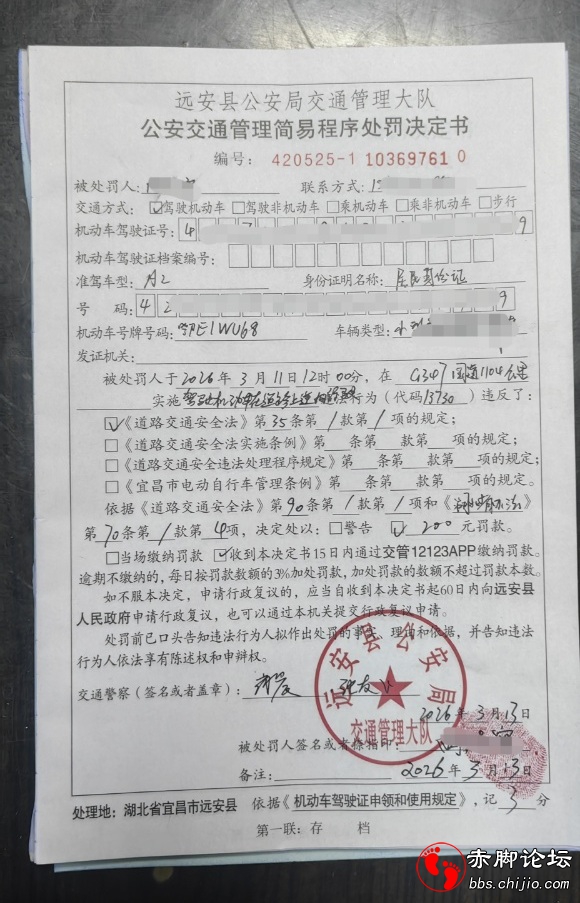 远安县公安局交通管理大队
公安交通管理简易程序处罚决定书
编号：420525-1 10369761 0
被处罚人： 联系方式：
交通方式：☑驾驶机动车 □驾驶非机动车 □乘机动车 □乘非机动车 □步行
机动车驾驶证号：4 9
机动车驾驶证档案编号：
准驾车型：A2 身份证明名称：居民身份证
号 码：42 9
机动车号牌号码：鄂E1WU68 车辆类型：小
发证机关：
被处罚人于2026年3月11日12时00分，在G347国道1104公里
实施驾驶机动车在道路上逆向行驶违法行为（代码13730）违反了：
☑《道路交通安全法》第35条第1款第1项的规定；
□《道路交通安全法实施条例》第 条第 款第 项的规定；
□《道路交通安全违法处理程序规定》第 条第 款第 项的规定；
□《宜昌市电动自行车管理条例》第 条第 款第 项的规定。
依据《道路交通安全法》第90条第1款第1项和《湖北省办法》
第70条第1款第4项，决定处以：□警告 ☑200元罚款。
□当场缴纳罚款 ☑收到本决定书15日内通过交管12123APP缴纳罚款。
逾期不缴纳的，每日按罚款数额的3%加处罚款，加处罚款的数额不超过罚款本数。
如不服本决定，申请行政复议的，应当自收到本决定书起60日内向远安县
人民政府申请行政复议，也可以通过本机关提交行政复议申请。
处罚前已口头告知违法行为人拟作出处罚的事实、理由和依据，并告知违法
行为人依法享有陈述权和申辩权。
交通警察（签名或者盖章）：
远安县公安局
交通管理大队
2026年3月13日
被处罚人签名或者捺指印：
备注： 2026年3月13日
处理地：湖北省宜昌市远安县 依据《机动车驾驶证申领和使用规定》，记3分
第一联：存 档
赤脚论坛
bbs.chijio.com